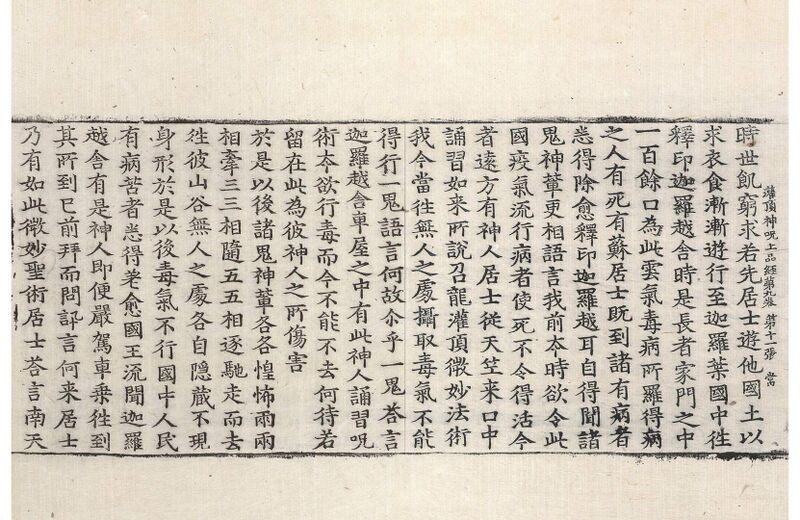 時世飢窮求若先居士遊他國土以
灌頂神呪上品經第九卷 第十一張 當
求衣食漸漸遊行至迦羅葉國中往
釋印迦羅越舍時是長者家門之中
一百餘口為此雲氣毒病所羅得病
之人有死有蘇居士既到諸有病者
悉得除愈釋印迦羅越耳自得聞諸
鬼神輩更相語言我前本時欲令此
國疫氣流行病者使死不令得活今
者遠方有神人居士從天竺来口中
誦習如来所說召龍灌頂微妙法術
我今當往無人之處攝取毒氣不能
得行一鬼語言何故尒乎一鬼荅言
迦羅越舍車屋之中有此神人誦習呪
術夲欲行毒而今不能不去何待若
留在此為彼神人之所傷害
於是以後諸鬼神輩各各惶怖兩兩
相牽三三相隨五五相逐馳走而去
往彼山谷無人之處各自隐蔵不現
身形於是以後毒氣不行國中人民
有病苦者悉得差愈國王流聞迦羅
越舍有是神人即便嚴駕車乗往到
其所到已前拜而問訊言何来居士
乃有如此微妙聖術居士荅言南天